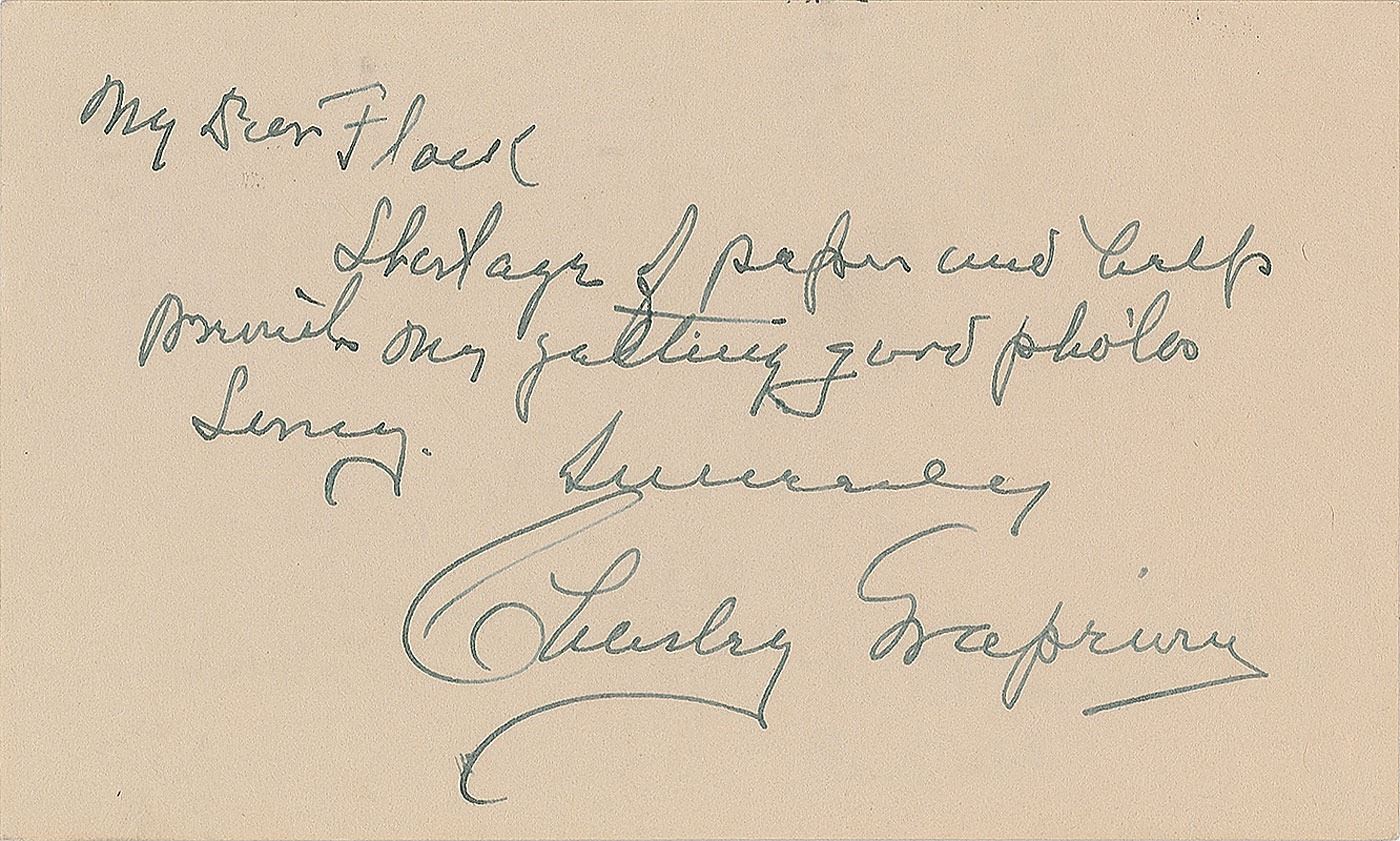 My Dear Flock
Shortage of paper and help
prevents my getting good photos
Sorry. Sincerely
Charley Grapewin